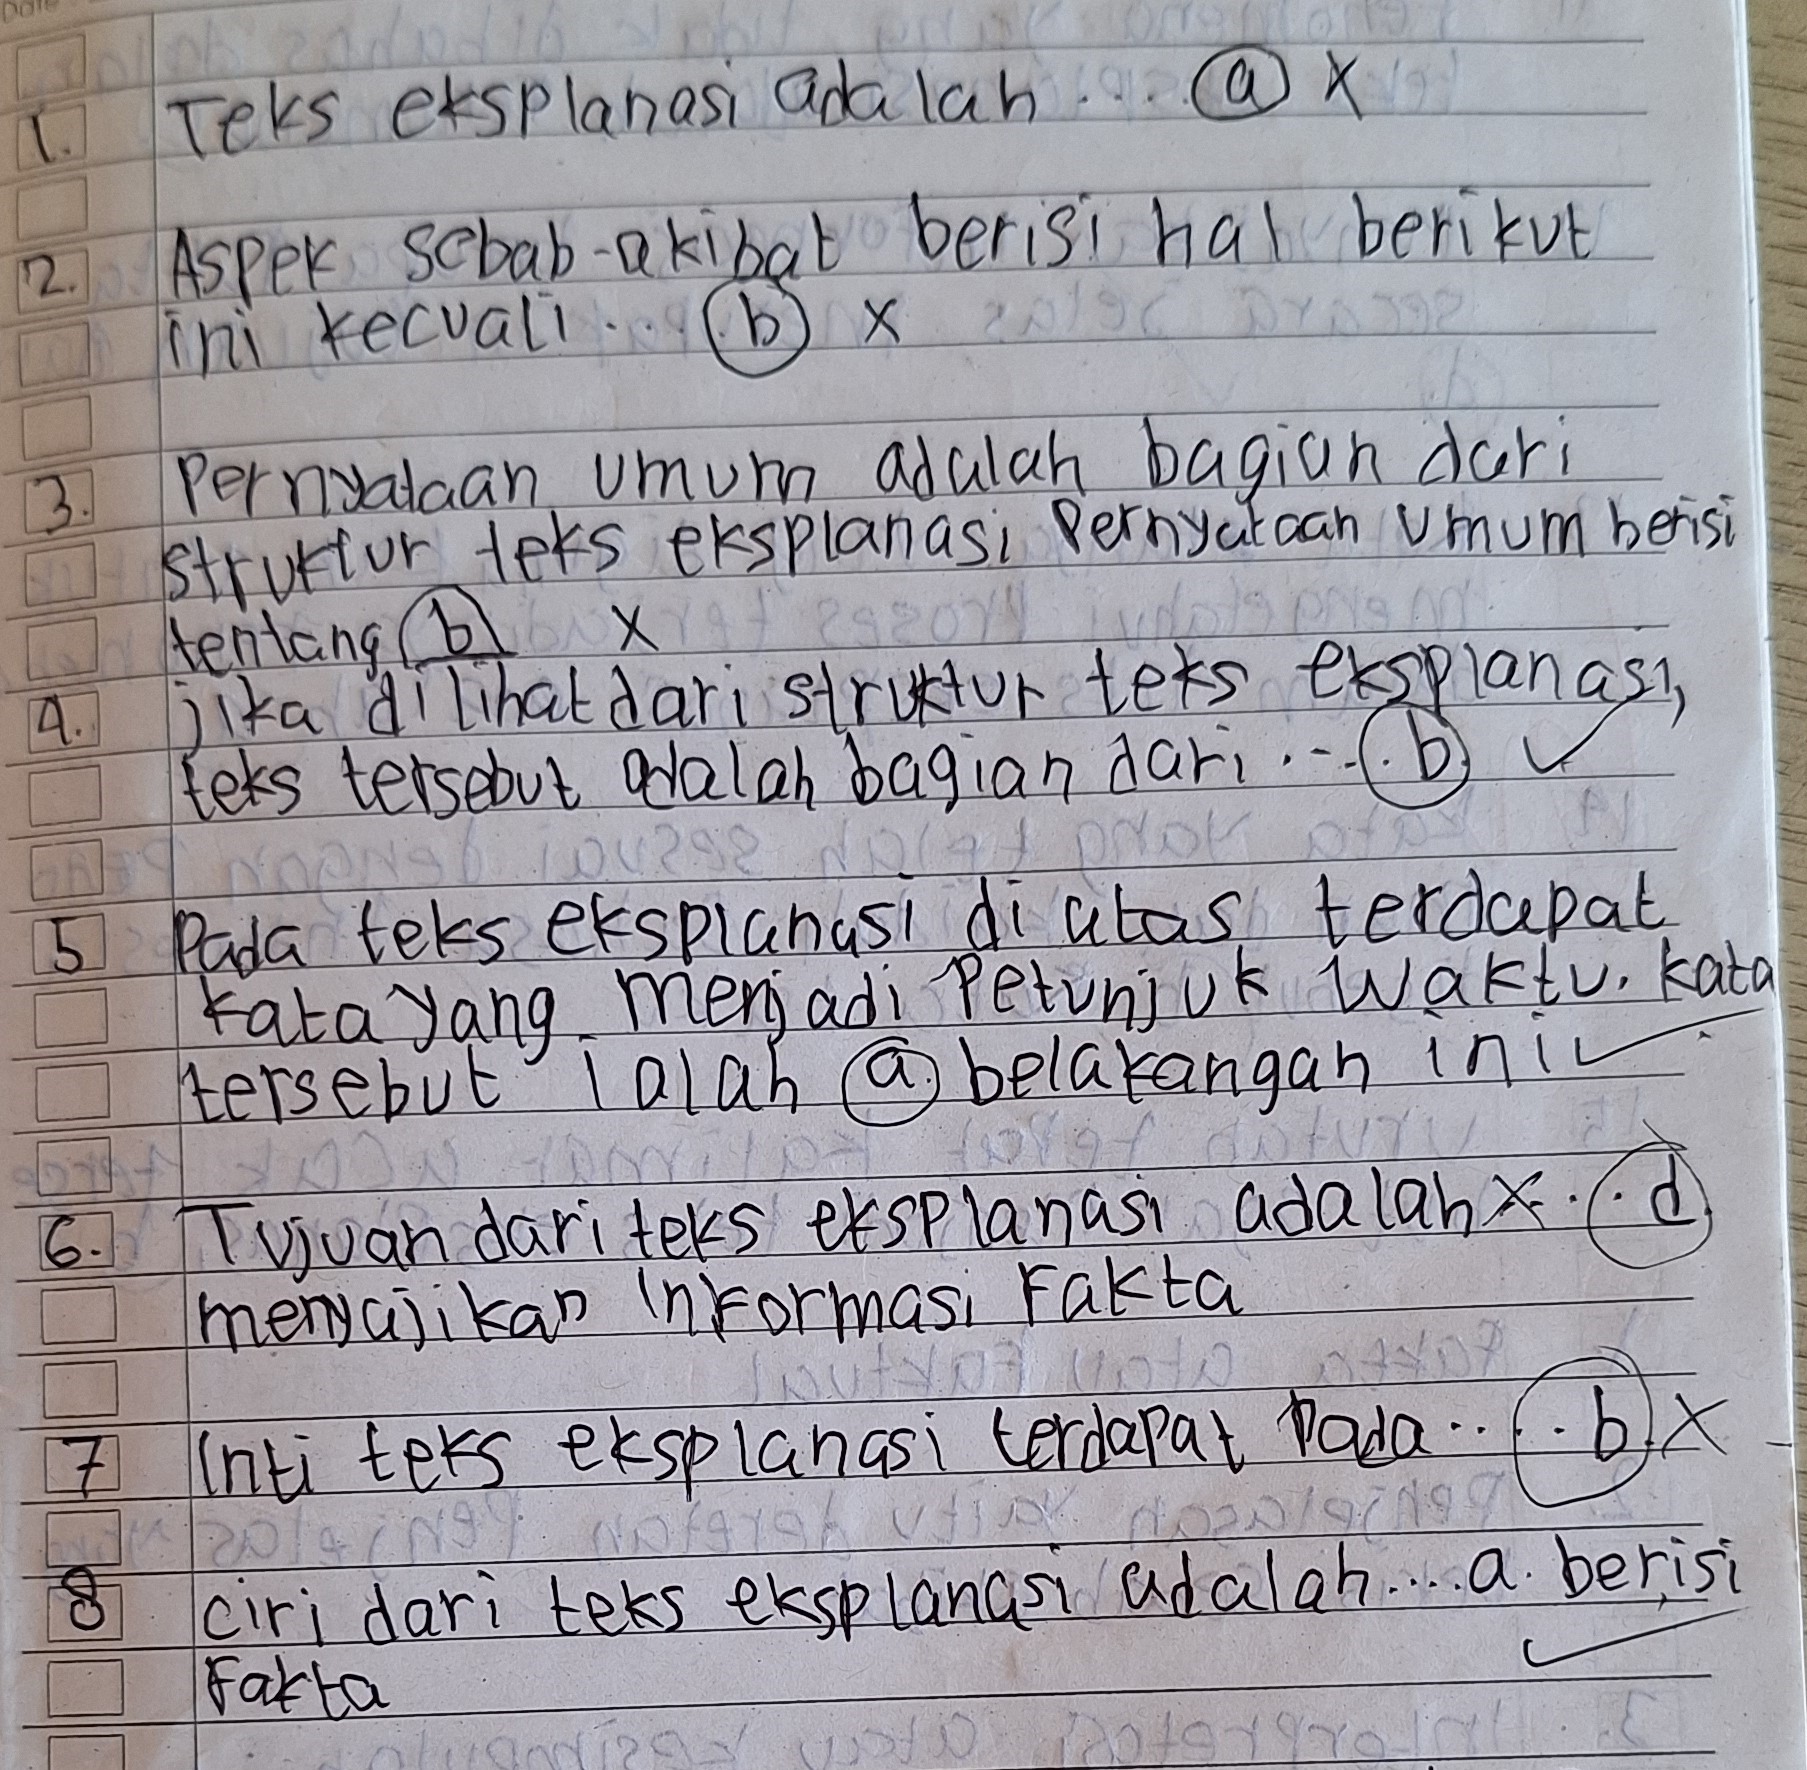 Date
1. Teks eksplanasi adalah .... a X
2. Aspek sebab-akibat berisi hal berikut
ini kecuali... b X
3. Pernyataan umum adalah bagian dari
struktur teks eksplanasi Pernyataan Umum berisi
tentang b X
4. jika dilihat dari struktur teks eksplanasi,
teks tersebut adalah bagian dari .... b ✓
5 Pada teks eksplanasi di atas terdapat
kata yang menjadi Petunjuk Waktu. kata
tersebut ialah a. belakangan ini ✓
6. Tujuan dari teks eksplanasi adalah X... d
menyajikan informasi Fakta
7 Inti teks eksplanasi terdapat Pada.... b X
8 ciri dari teks eksplanasi adalah.... a. berisi
✓
Fakta